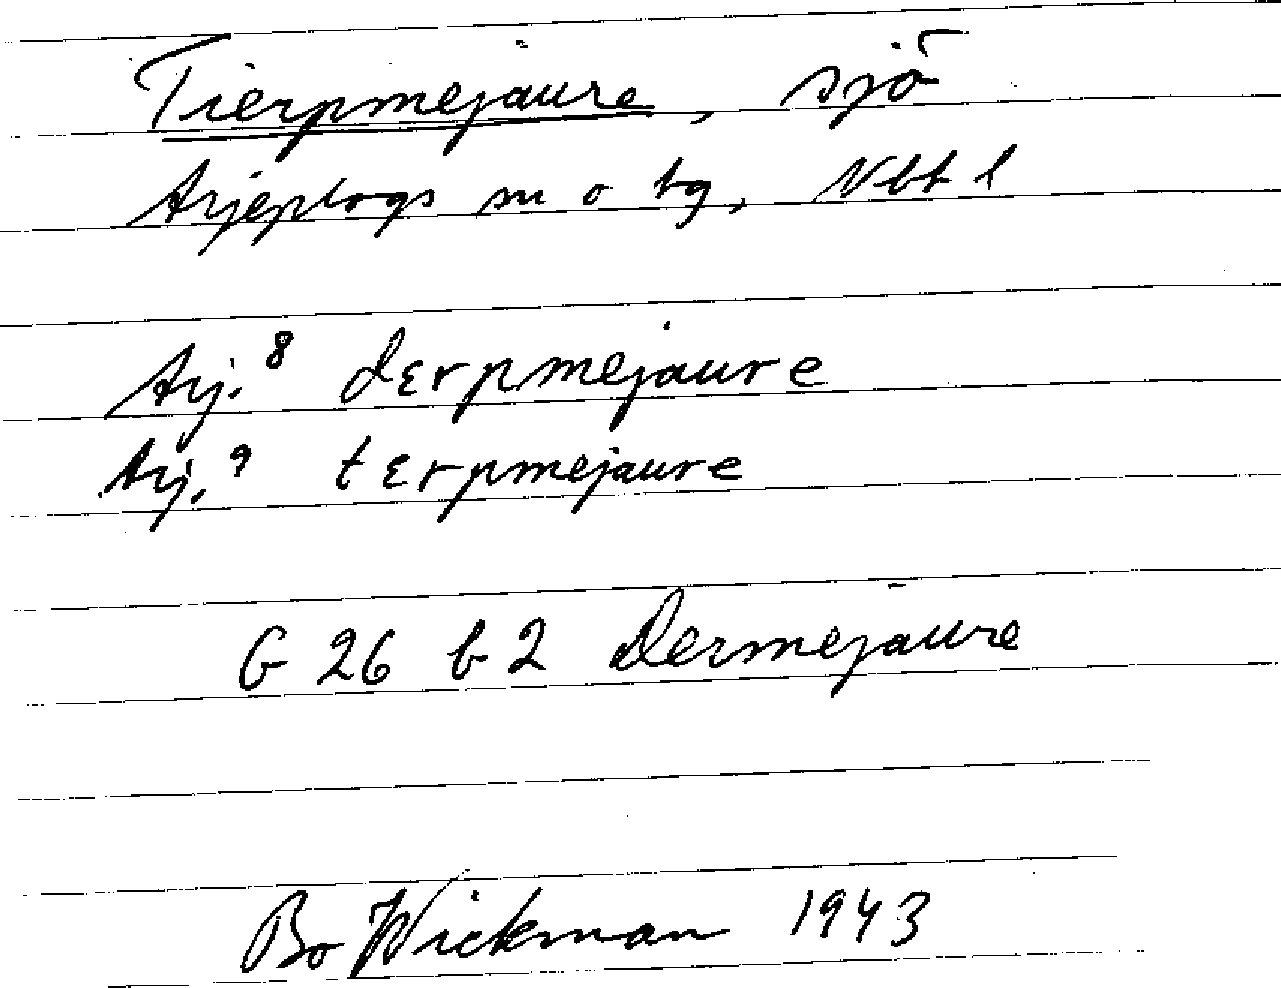 Tierpmejaure, sjö
Arjeplogs sn o tg, Nbt l
Arj.⁸ dɛrpmejaure
Arj.⁹ tɛrpmejaure
G 26 b 2 Dermejaure
Bo Wickman 1943